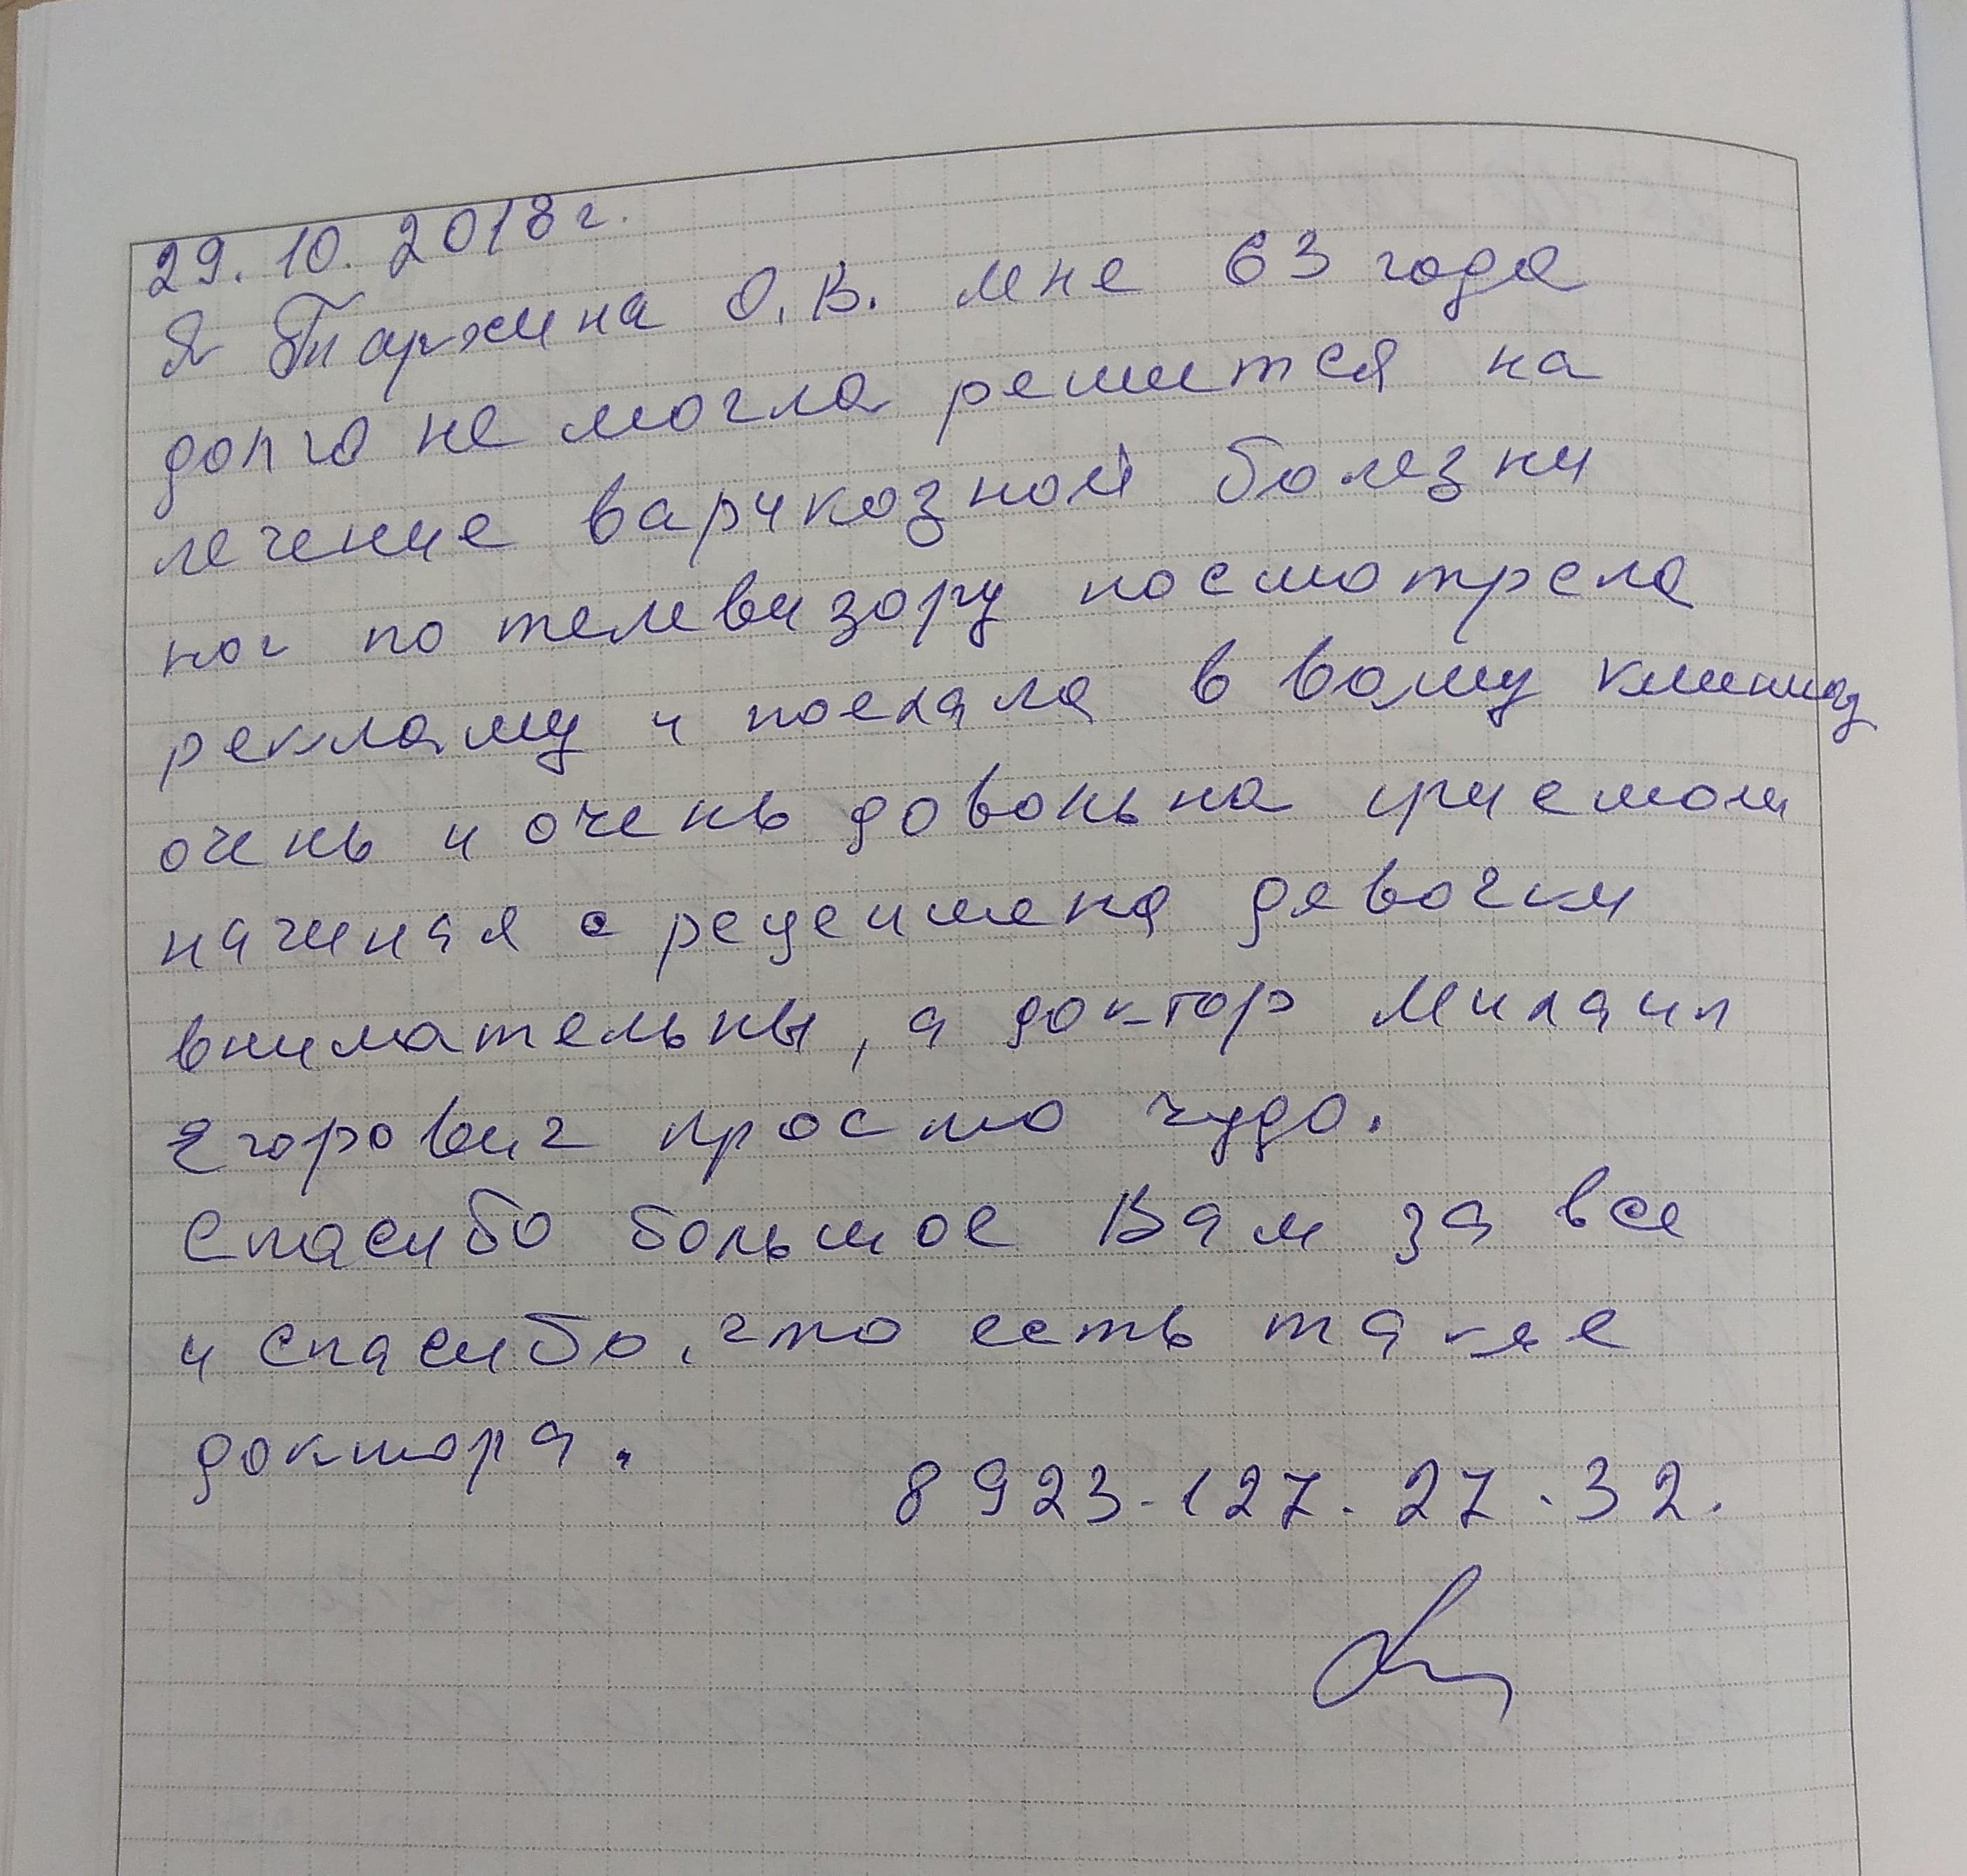 29.10.2018г.
Я Таржина О.В. мне 63 года
долго не могла решится на
лечение варикозной болезни
ног по телевизору посмотрела
рекламу и поехала в вашу клинику
очень и очень довольна приемом
начиная с рецепшена девочки
внимательны, а доктор Михаил
Егорович просто чудо.
Спасибо большое Вам за все
и спасибо, что есть такие
доктора.
8923-127-27-32.